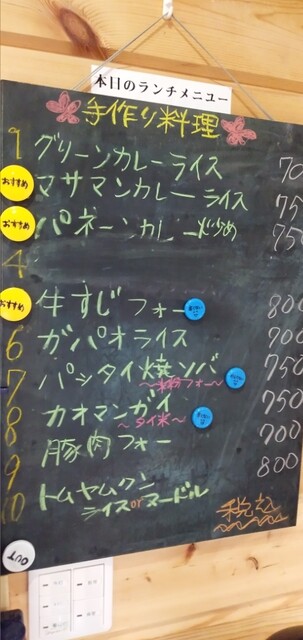 本日のランチメニュー
手作り料理
1 グリーンカレーライス 70
おすすめ マサマンカレーライス 75
おすすめ パネーンカレー炒め 75
4
おすすめ 牛すじフォー 800
6 ガパオライス 700
7 パッタイ焼ソバ 750
〜米粉フォー〜
8 カオマンガイ 750
〜タイ米〜
豚肉フォー 700
9 800
10 トムヤムクン
ライスorヌードル
税込
OUT